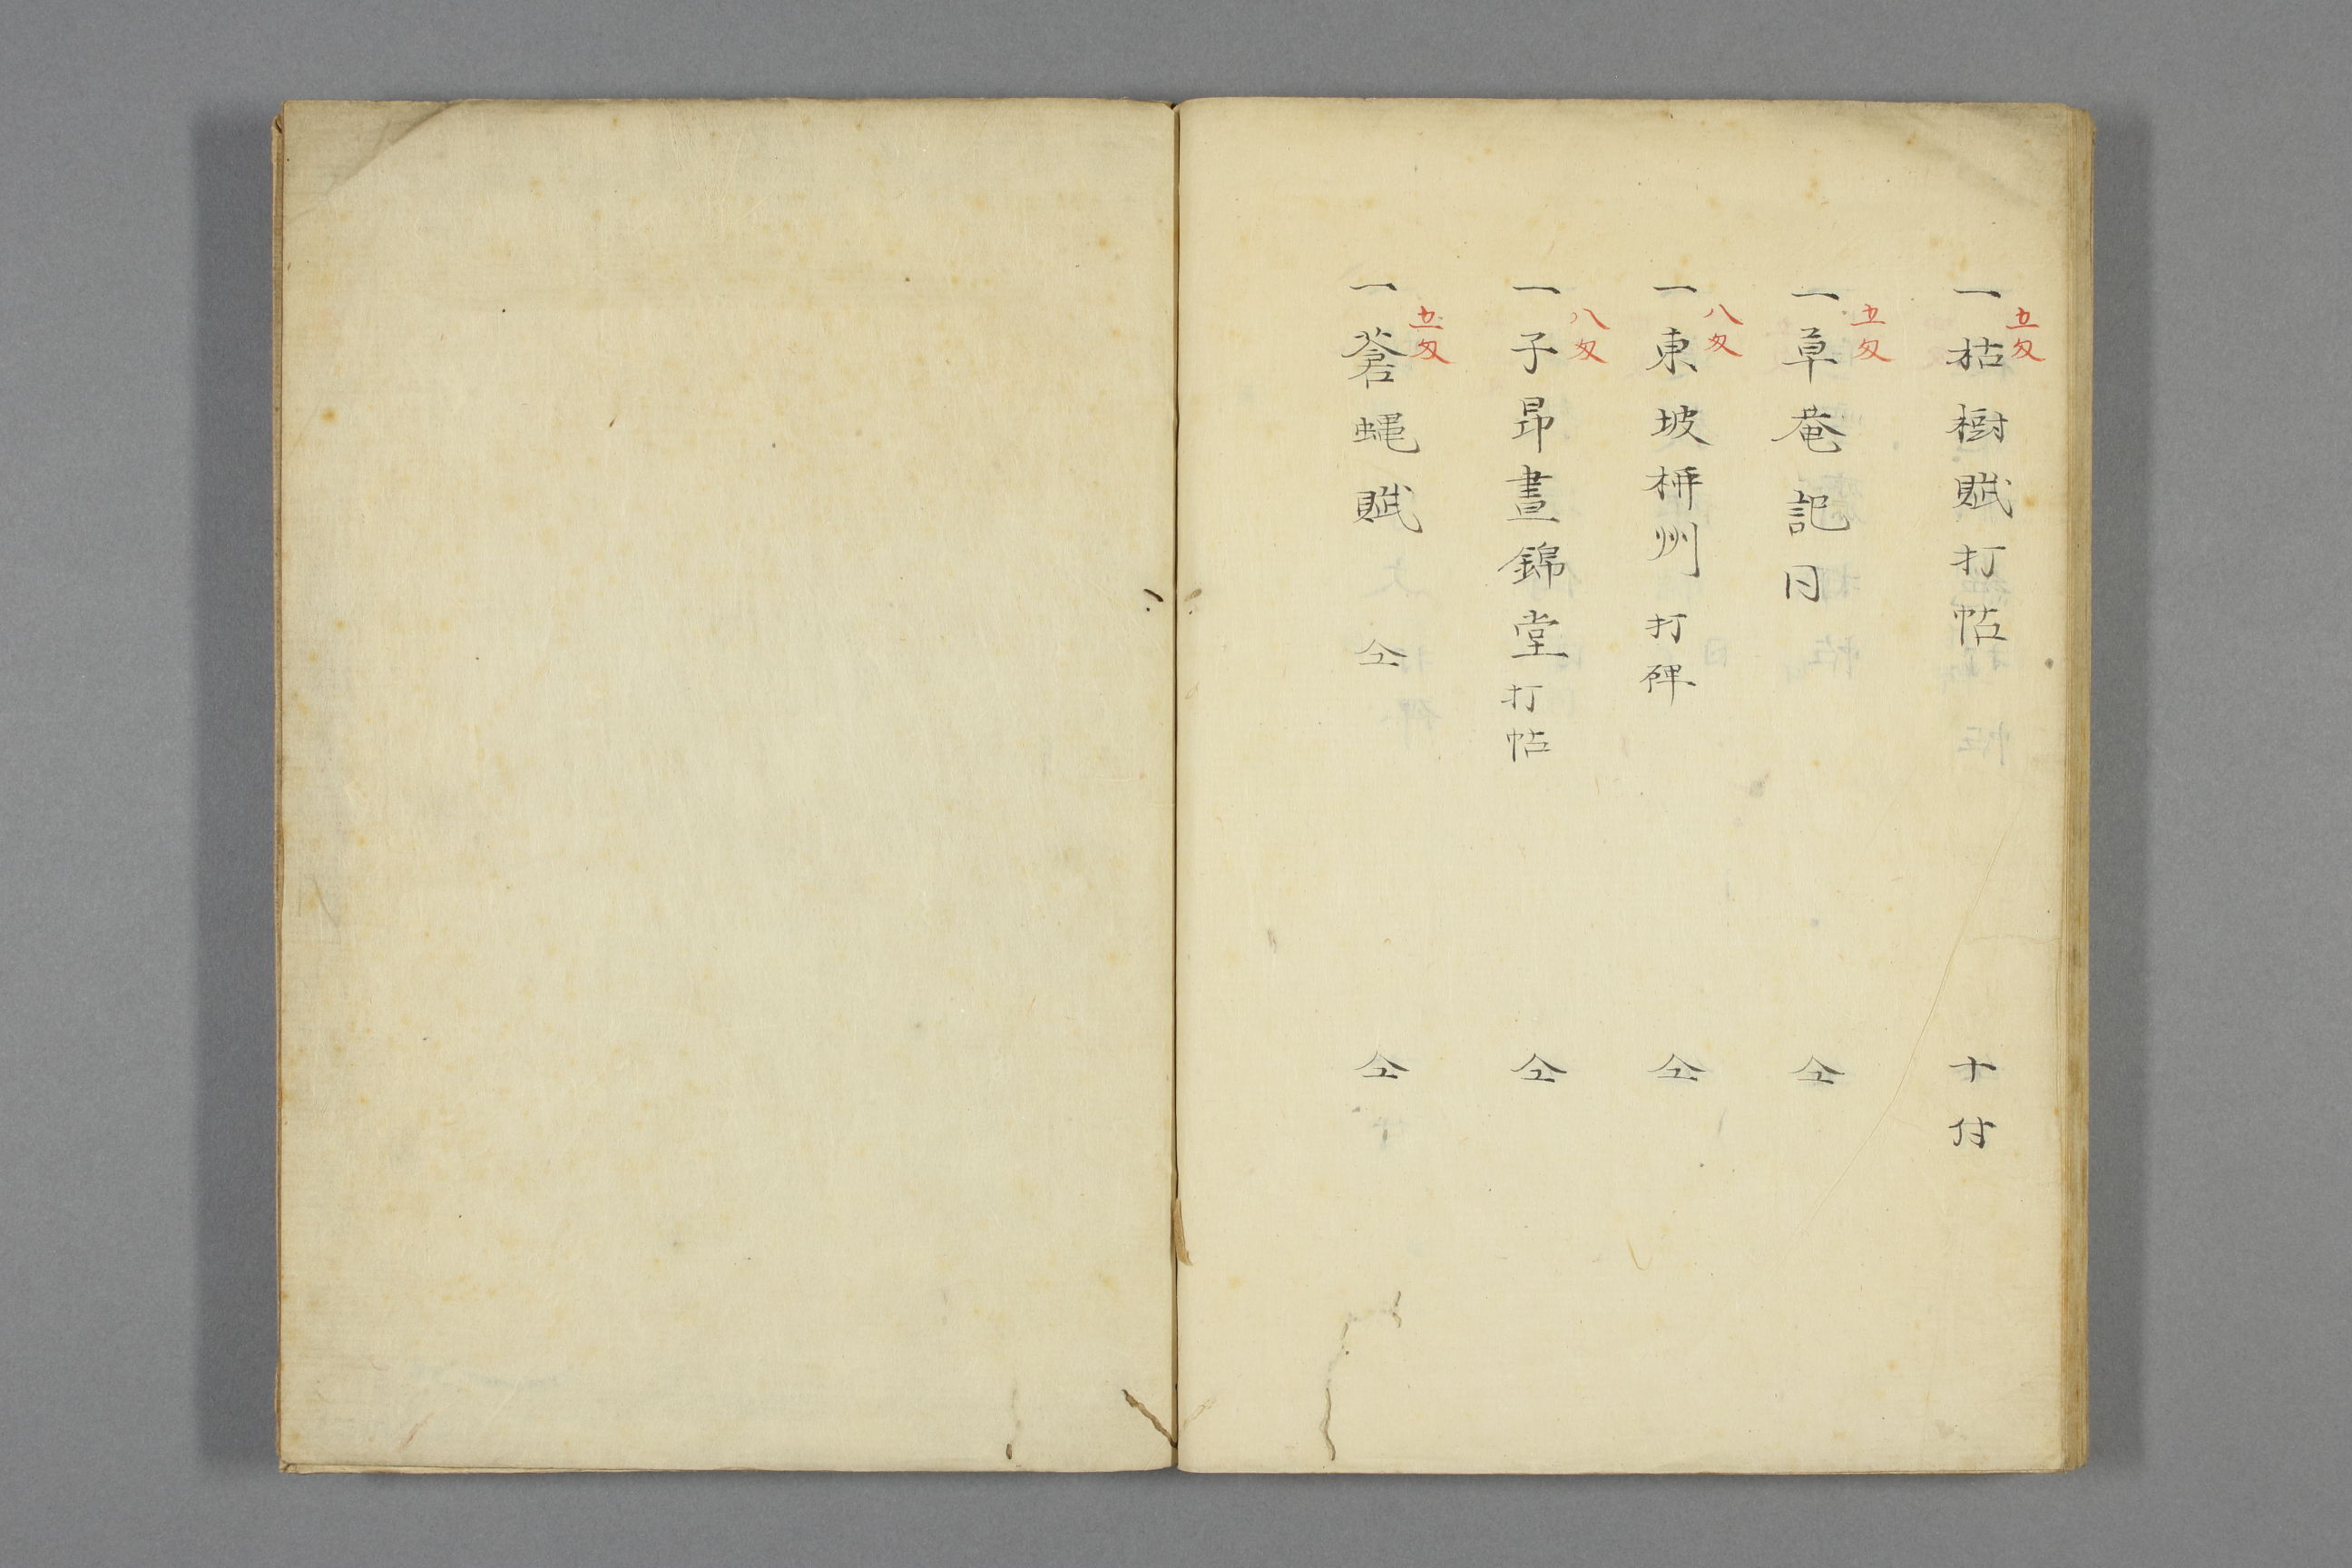 五匁
一枯樹賦打帖 十付
五匁
一草菴記同 仝
八匁
一東坡柳州打碑 仝
八匁
一子昂晝錦堂打帖 仝
五匁
一蒼蝿賦 仝 仝